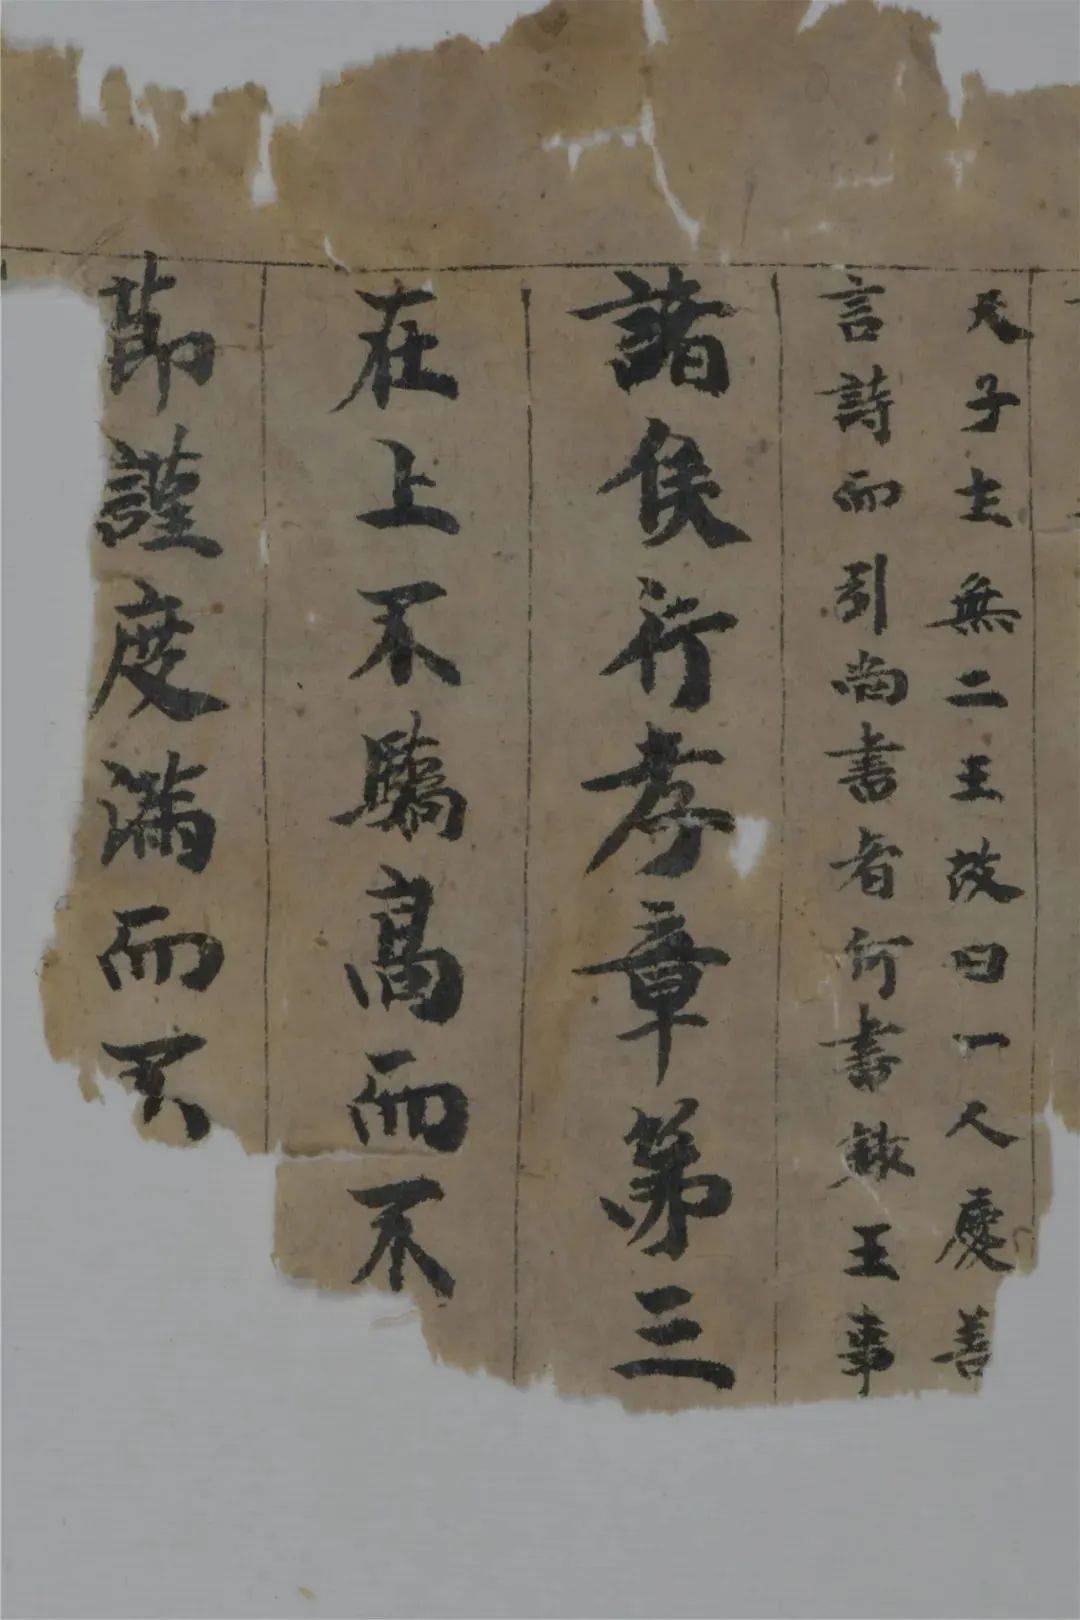 天子主無二王故曰一人慶善
言詩而引尚書者何書錄王事
諸侯行孝章第三
在上不驕高而不
節謹度滿而不